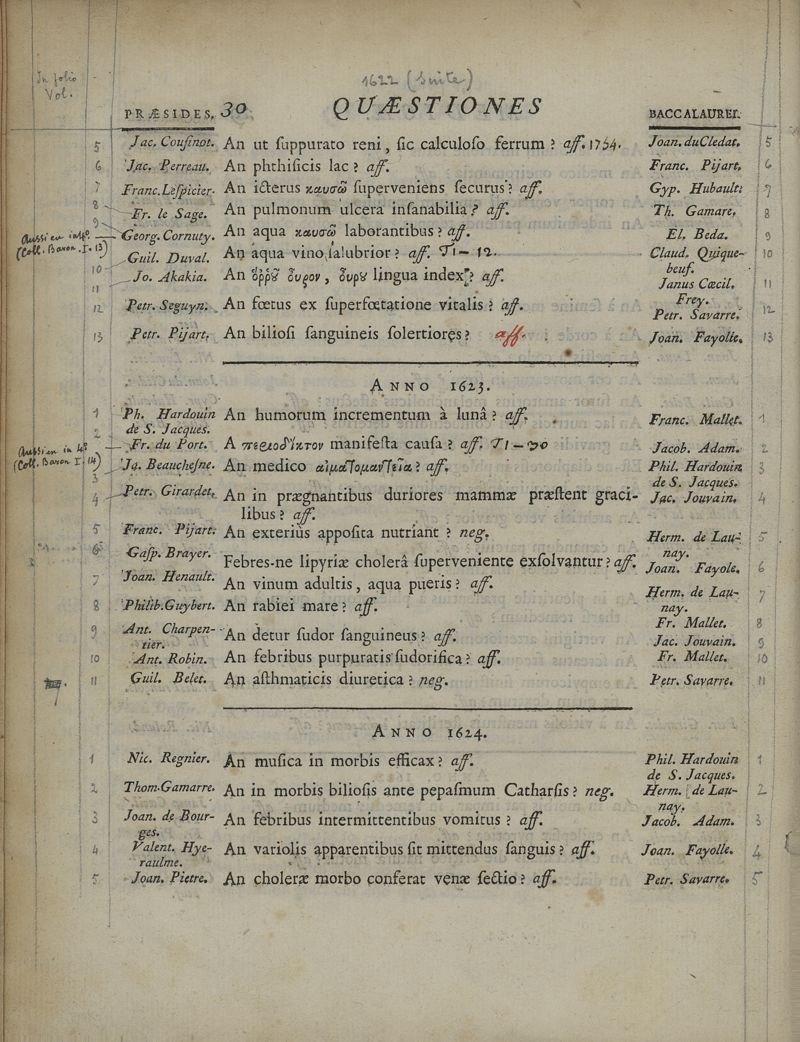 In folio
Vol.
1622 (Suite)
PRÆSIDES. 30 QUÆSTIONES BACCALAUREI.
5 Jac. Cousinot. An ut suppurato reni, sic calculoso ferrum? aff. 1754. Joan. du Cledat. 5
6 Jac. Perreau. An phthisicis lac? aff. Franc. Pijart. 6
7 Franc. Lespicier. An icterus καυσῶ superveniens securus? aff. Gyp. Hubault: 7
8 Fr. le Sage. An pulmonum ulcera insanabilia? aff. Th. Gamare. 8
9 Georg. Cornuty. An aqua καυσῶ laborantibus? aff. El. Beda. 9
Aussi en in 4º.
(Coll. Baron. I. 13)
10 Guil. Duval. An aqua vino salubrior? aff. Claud. Quique- 10
beuf.
11 Jo. Akakia. An ὀῤῥȣ̃ οὖρον, οὖρȣ lingua index? aff. Janus Cæcil. 11
Frey.
12 Petr. Seguyn. An fœtus ex superfœtatione vitalis? aff. Petr. Savarre. 12
13 Petr. Pijart. An biliosi sanguineis solertiores? aff. Joan. Fayolle. 13
ANNO 1623.
1 Ph. Hardouin An humorum incrementum à lunâ? aff. Franc. Mallet. 1
de S. Jacques.
2 Fr. du Port. A περιοδίκτον manifesta causa? aff. Jacob. Adam. 2
Aussi en in 4º
(Coll. Baron I. 14)
3 Ja. Beauchesne. An medico αἱματομαντεῖα? aff. Phil. Hardouin 3
de S. Jacques.
4 Petr. Girardet. An in prægnantibus duriores mammæ præstent graci- Jac. Jouvain. 4
libus? aff.
5 Franc. Pijart: An exteriùs apposita nutriant? neg. Herm. de Lau- 5
nay.
6 Gasp. Brayer. Febres-ne lipyriæ cholerâ superveniente exsolvantur? aff. Joan. Fayole. 6
7 Joan. Henault. An vinum adultis, aqua pueris? aff. Herm. de Lau- 7
nay.
8 Philib. Guybert. An rabiei mare? aff. Fr. Mallet. 8
9 Ant. Charpen- An detur sudor sanguineus? aff. Jac. Jouvain. 9
tier.
10 Ant. Robin. An febribus purpuratis sudorifica? aff. Fr. Mallet. 10
11 Guil. Belet. An asthmaticis diuretica? neg. Petr. Savarre. 11
ANNO 1624.
1 Nic. Regnier. An musica in morbis efficax? aff. Phil. Hardouin 1
de S. Jacques.
2 Thom. Gamarre. An in morbis biliosis ante pepasmum Catharsis? neg. Herm. de Lau- 2
nay.
3 Joan. de Bour- An febribus intermittentibus vomitus? aff. Jacob. Adam. 3
ges.
4 Valent. Hye- An variolis apparentibus sit mittendus sanguis? aff. Joan. Fayolle. 4
raulme.
5 Joan. Pietre. An choleræ morbo conferat venæ sectio? aff. Petr. Savarre. 5